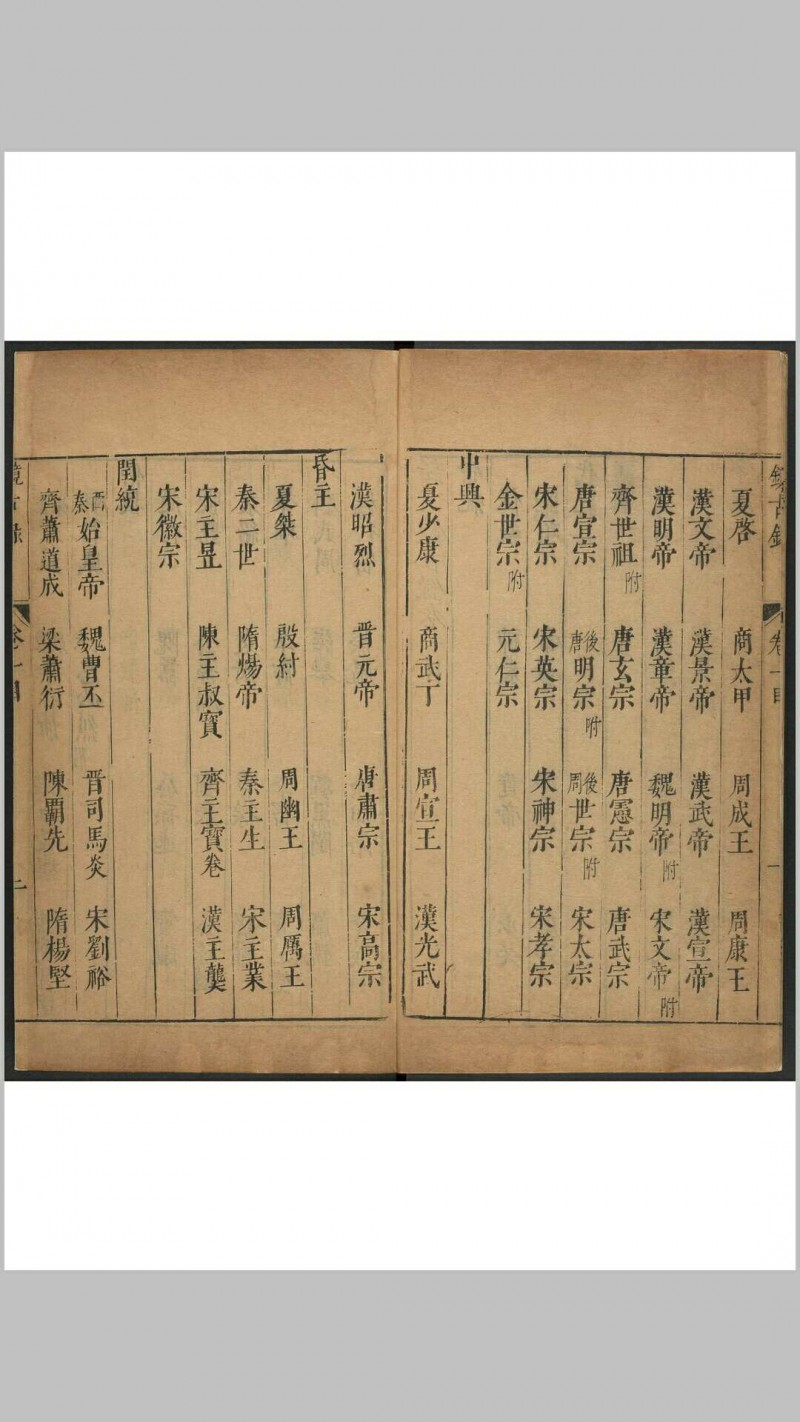 鏡古錄 卷一目 一
夏啓 商太甲 周成王 周康王
漢文帝 漢景帝 漢武帝 漢宣帝
漢明帝 漢章帝 魏明帝附 宋文帝附
齊世祖附 唐玄宗 唐憲宗 唐武宗
唐宣宗 後唐明宗附 後周世宗附 宋太宗
宋仁宗 宋英宗 宋神宗 宋孝宗
金世宗附 元仁宗
中興
夏少康 商武丁 周宣王 漢光武
漢昭烈 晉元帝 唐肅宗 宋高宗
昏主
夏桀 殷紂 周幽王 周厲王
秦二世 隋煬帝 秦主生 宋主業
宋主昱 陳主叔寶 齊主寶卷 漢主龑
宋徽宗
閏統
西秦始皇帝 魏曹丕 晉司馬炎 宋劉裕
齊蕭道成 梁蕭衍 陳霸先 隋楊堅
鏡古錄 卷一目 二